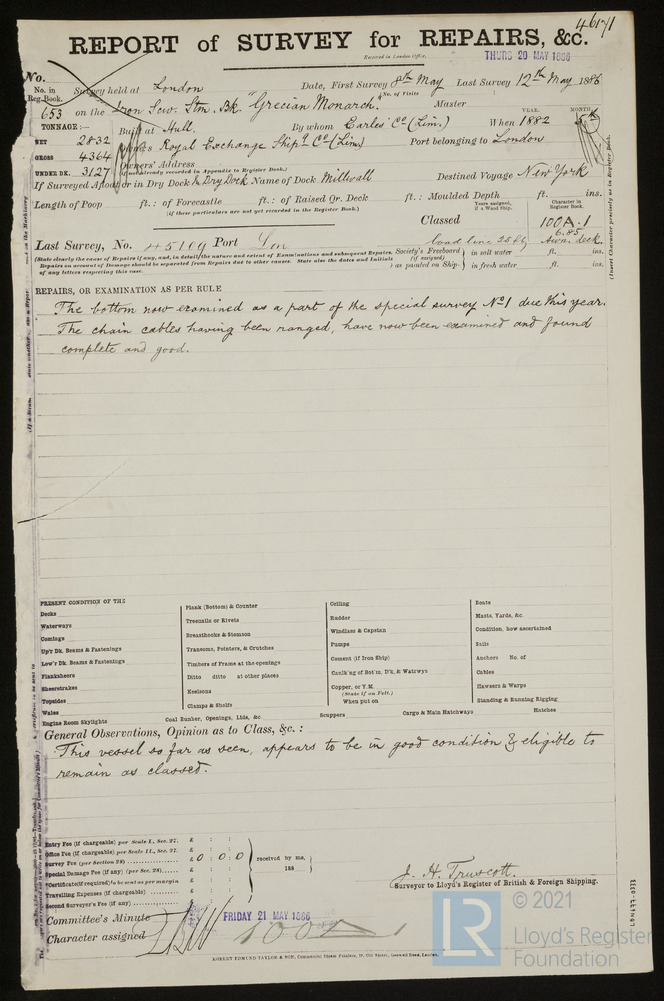 46171
REPORT of SURVEY for REPAIRS, &c.
Received in London Office, THURS 20 MAY 1886
No.
No. in Reg. Book.
Survey held at London Date, First Survey 8th May Last Survey 12th May 1886
No. of Visits
653 on the Iron Scw. Stm. Bk. "Grecian Monarch." Master
TONNAGE:—
Built at Hull. By whom Earles' Co (Lim.) When 1882 5th
YEAR. MONTH.
NET 2832
Owners Royal Exchange Shipg Co (Lim.) Port belonging to London
GROSS 4364
Owners' Address
(if not already recorded in Appendix to Register Book.)
UNDER DK. 3127
If Surveyed Afloat or in Dry Dock In Dry Dock Name of Dock Millwall Destined Voyage New York
Length of Poop ft.: of Forecastle ft.: of Raised Qr. Deck ft.: Moulded Depth ft. ins.
(if these particulars are not yet recorded in the Register Book.)
Years assigned, if a Wood Ship.
Character in Register Book.
Classed 100A.1
6.85
Last Survey, No. 45109 Port Lon
Awn. deck.
(State clearly the cause of Repairs if any, and, in detail, the nature and extent of Examinations and subsequent Repairs.
Repairs on account of Damage should be separated from Repairs due to other causes. State also the dates and Initials of any letters respecting this case.
Society's Freeboard (if assigned) as painted on Ship.
in salt water ft. ins.
in fresh water ft. ins.
REPAIRS, OR EXAMINATION AS PER RULE
The bottom now examined as a part of the special survey No 1 due this year.
The chain cables having been ranged, have now been examined and found
complete and good.
PRESENT CONDITION OF THE
Decks
Waterways
Comings
Up'r Dk. Beams & Fastenings
Low'r Dk. Beams & Fastenings
Planksheers
Sheerstrakes
Topsides
Wales
Engine Room Skylights
Plank (Bottom) & Counter
Treenails or Rivets
Breasthooks & Stemson
Transoms, Pointers, & Crutches
Timbers of Frame at the openings
Ditto ditto at other places
Keelsons
Clamps & Shelfs
Coal Bunker, Openings, Lids, &c.
Ceiling
Rudder
Windlass & Capstan
Pumps
Cement (if Iron Ship)
Caulk'ng of Bot'm, D'k, & Watrwys
Copper, or Y.M.
(State if on Felt.)
When put on
Scuppers
Cargo & Main Hatchways
Boats
Masts, Yards, &c.
Condition, how ascertained
Sails
Anchors No. of
Cables
Hawsers & Warps
Standing & Running Rigging
Hatches
General Observations, Opinion as to Class, &c.:
This vessel so far as seen, appears to be in good condition & eligible to
remain as classed.
Entry Fee (if chargeable) per Scale I., Sec. 27. £ : :
Office Fee (if chargeable) per Scale II., Sec. 27. £ : :
Survey Fee (per Section 28) £ 0 : 0 : 0
Special Damage Fee (if any) (per Sec. 28) £ : :
Certificate (if required) to be sent as per margin
Travelling Expenses (if chargeable) £ : :
Second Surveyor's Fee (if any) £ : :
received by me,
188
J. H. Truscott.
Surveyor to Lloyd's Register of British & Foreign Shipping.
Committee's Minute FRIDAY 21 MAY 1886
Character assigned 100A 1
ROBERT EDMUND TAYLOR & SON, Commercial Steam Printers, 19, Old Street, Goswell Road, London.
LR
© 2021
Lloyd's Register
Foundation